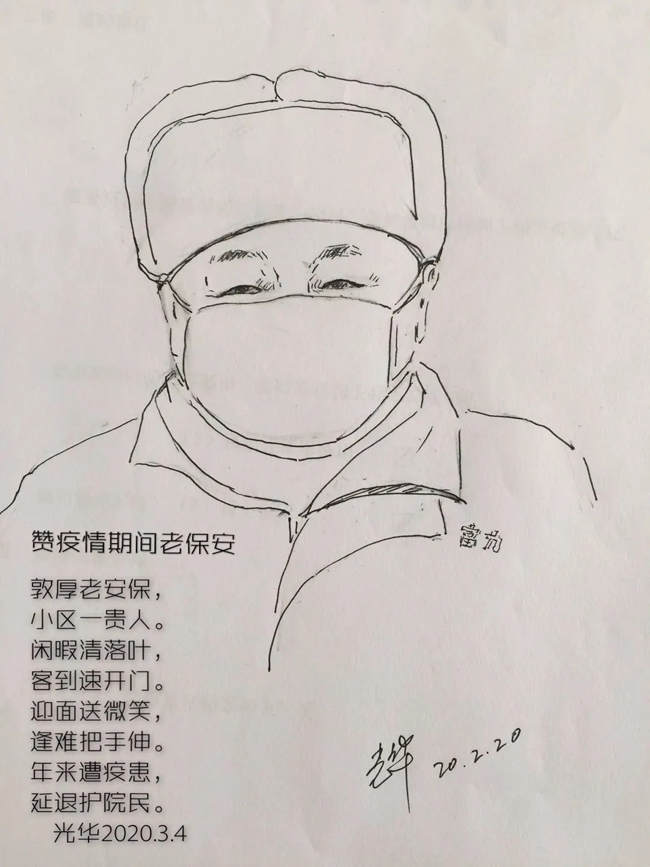 赞疫情期间老保安
敦厚老安保，
小区一贵人。
闲暇清落叶，
客到速开门。
迎面送微笑，
逢难把手伸。
年来遭疫患，
延退护院民。
光华2020.3.4
光华 20.2.20